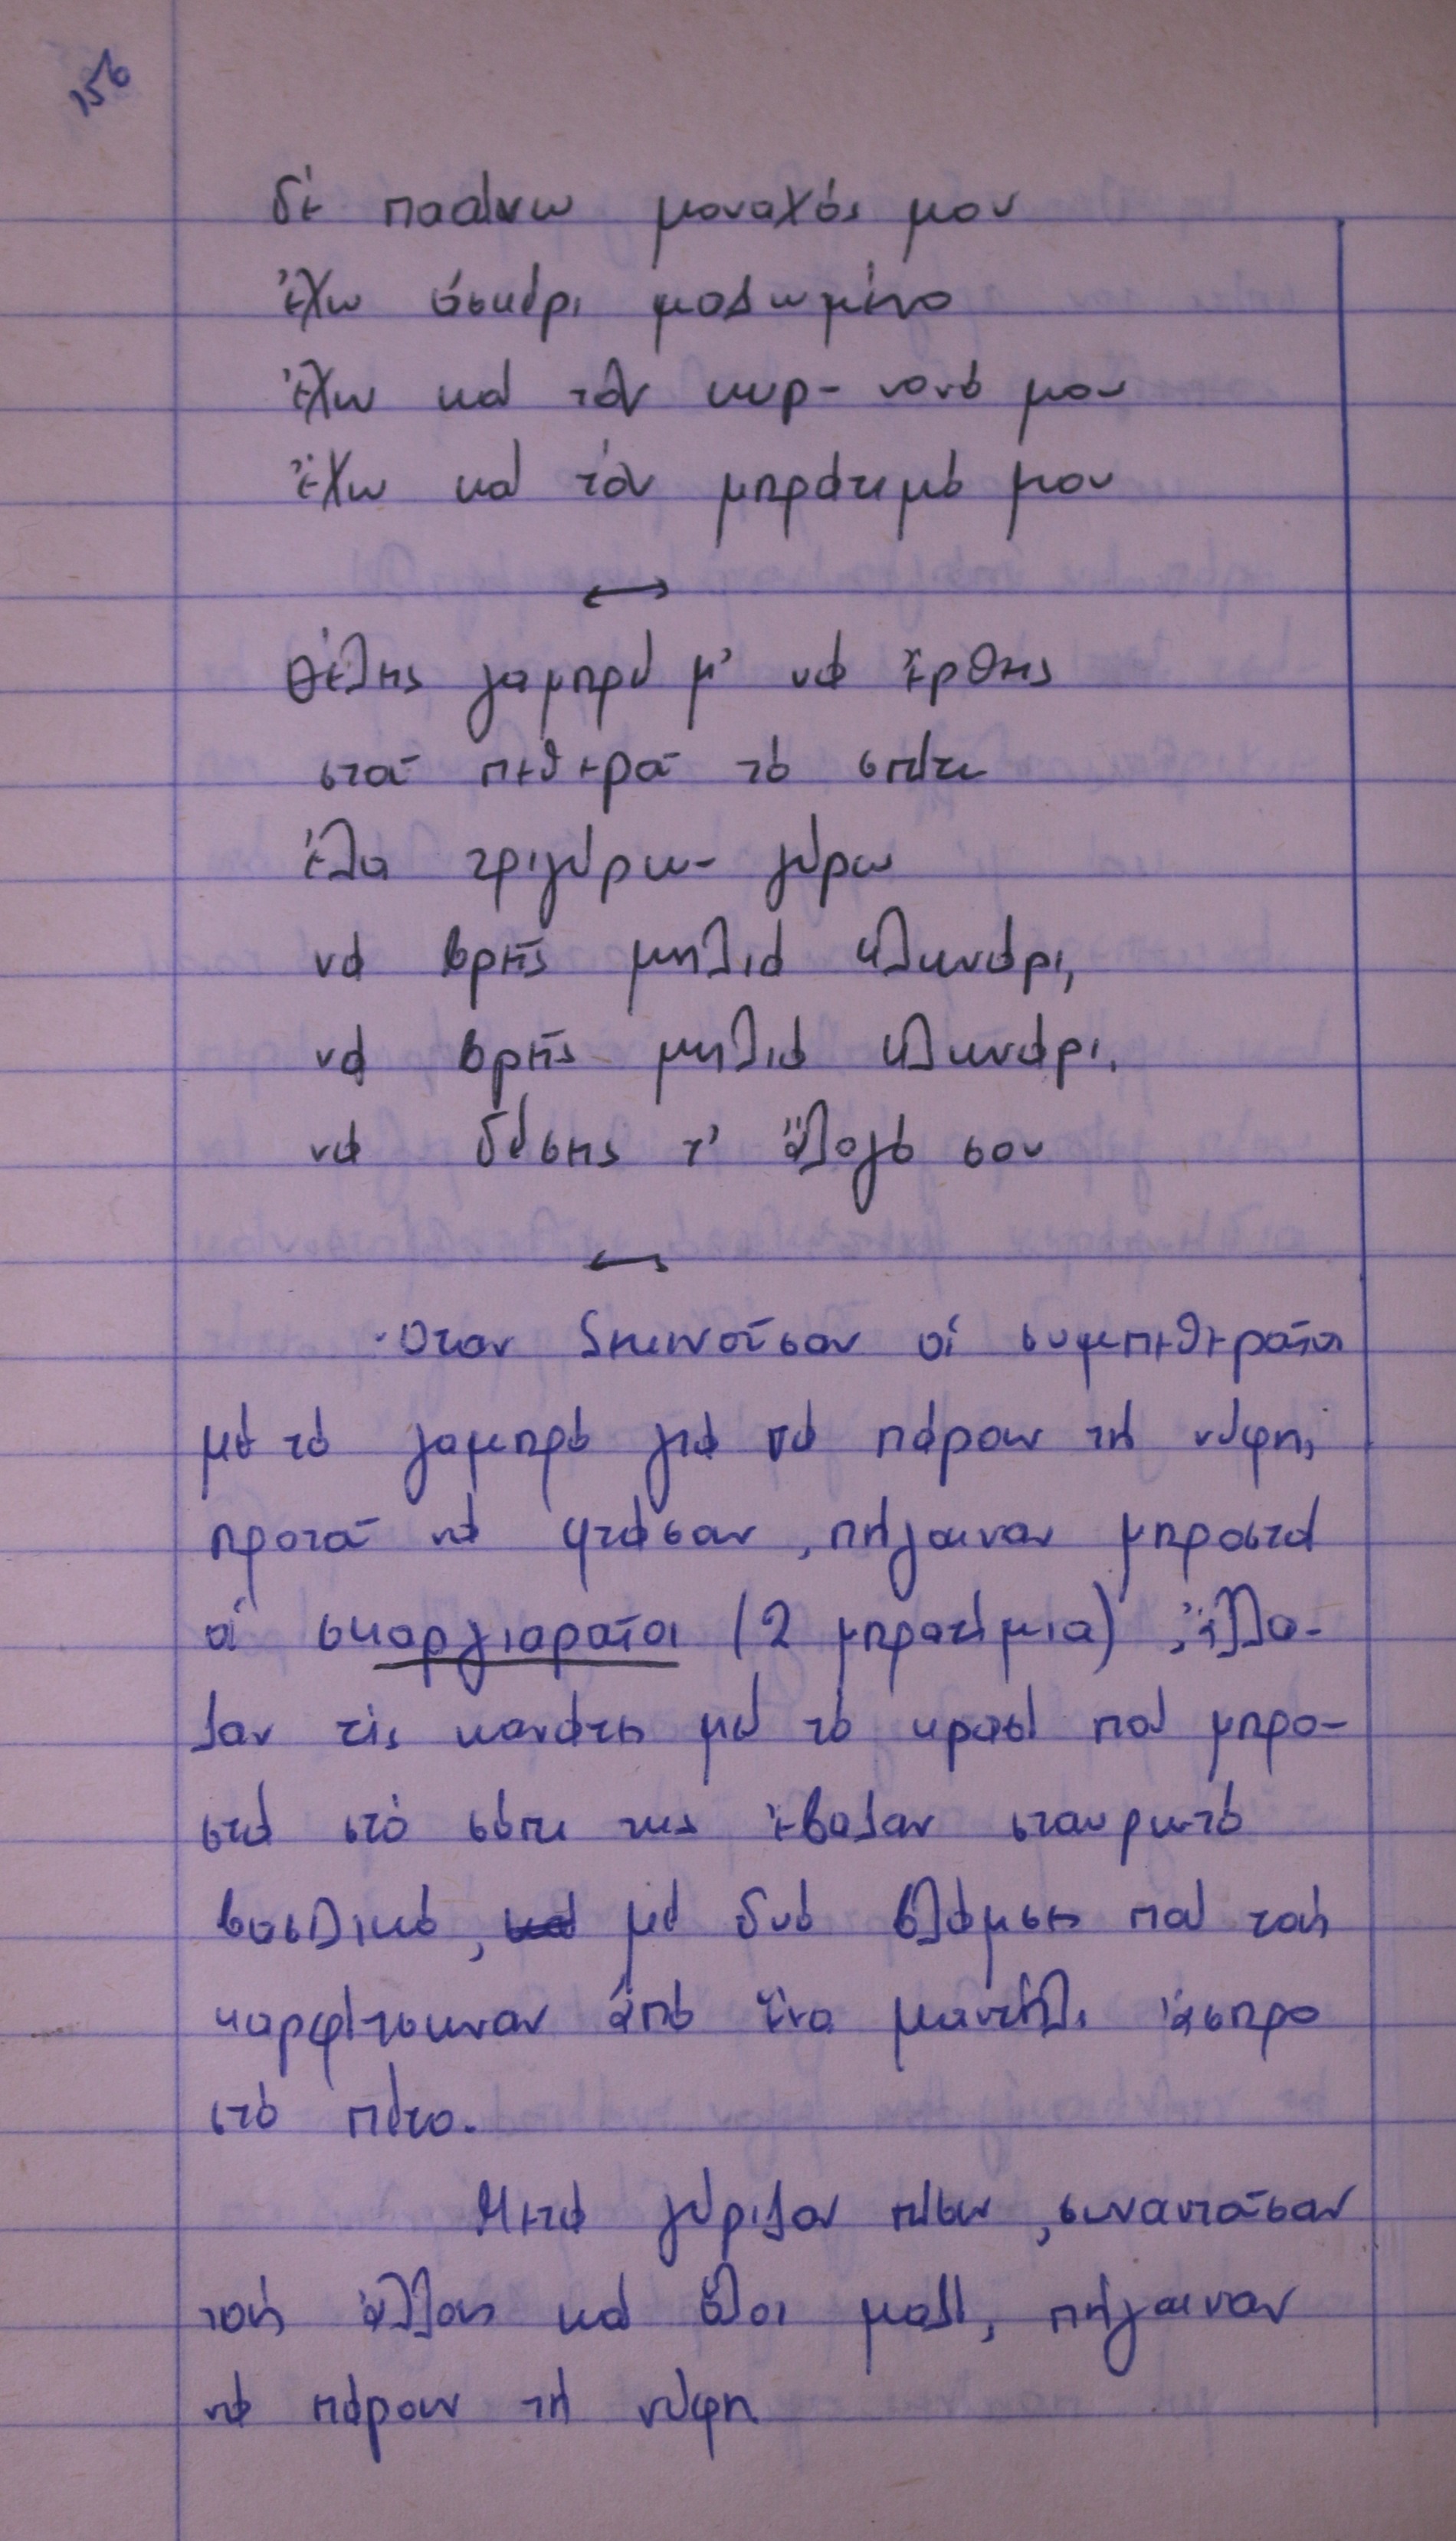 156
δὲ πααίνω μοναχός μου
ἔχω ἀσκέρι μαζωμένο
ἔχω καὶ τὸν κυρ- νουνό μου
ἔχω καὶ τὸν μπράτιμό μου
θέλῃς γαμπρέ μ' νὰ ἔρθῃς
στοῦ πεθεροῦ τὸ σπίτι
ἔλα τριγύρω- γύρω
νὰ βρῇς μηλιά κλωνάρι,
νὰ βρῇς μηλιά κλωνάρι.
νὰ δέσῃς τ' ἄλογό σου
Ὅταν ξεκινοῦσαν οἱ συμπεθεραῖοι
μὲ τὸ γαμπρὸ γιὰ νὰ πάρουν τὴ νύφη,
προτοῦ νὰ φτάσουν, πήγαιναν μπροστὰ
οἱ σκαργιαραῖοι (2 μπρατίμια), ἄλλα-
ζαν τὶς κανάτες μὲ τὸ κρασὶ ποὺ μπρο-
στὰ στὸ στόμα της ἔβαζαν σταυρωτὸ
βασιλικό, μὲ δυὸ βλάμισες ποὺ τοὺς
καρφίτσωναν ἀπὸ ἕνα μαντήλι ἄσπρο
στὸ πέτο.
Μετὰ γύριζαν πίσω, συναντοῦσαν
τοὺς ἄλλους καὶ ὅλοι μαζί, πήγαιναν
νὰ πάρουν τὴ νύφη.